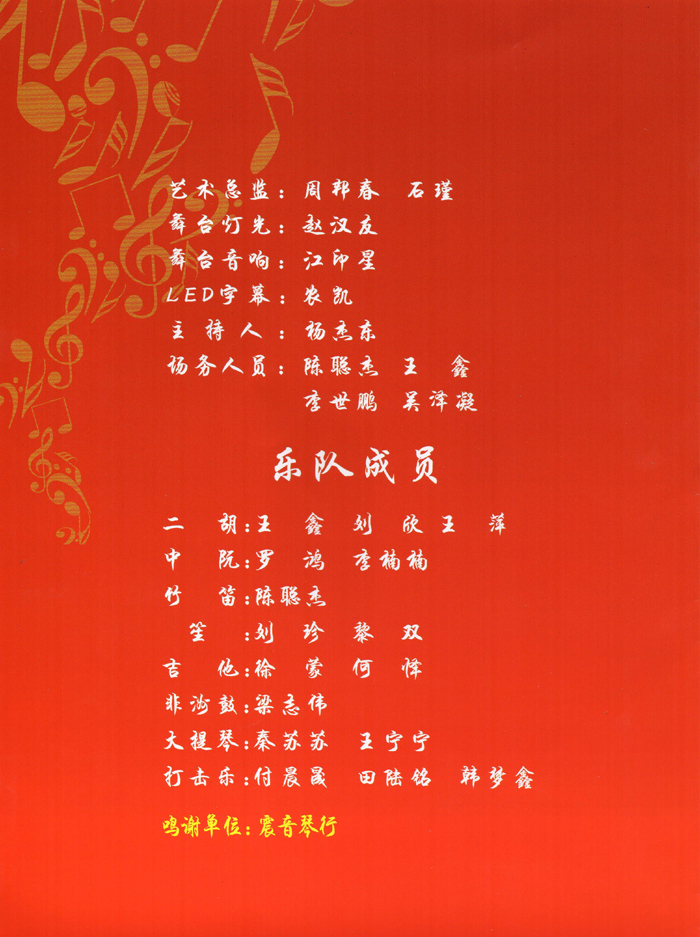 艺术总监：周邦春 石瑾
舞台灯光：赵汉友
舞台音响：江印星
LED字幕：农凯
主持人：杨杰东
场务人员：陈聪杰 王鑫
李世鹏 吴泽凝
乐队成员
二胡：王鑫 刘欣 王萍
中阮：罗鸿 李楠楠
竹笛：陈聪杰
笙：刘珍 黎双
吉他：徐蒙 何怿
非洲鼓：梁志伟
大提琴：秦苏苏 王宁宁
打击乐：付晨晟 田陆铭 韩梦鑫
鸣谢单位：震音琴行